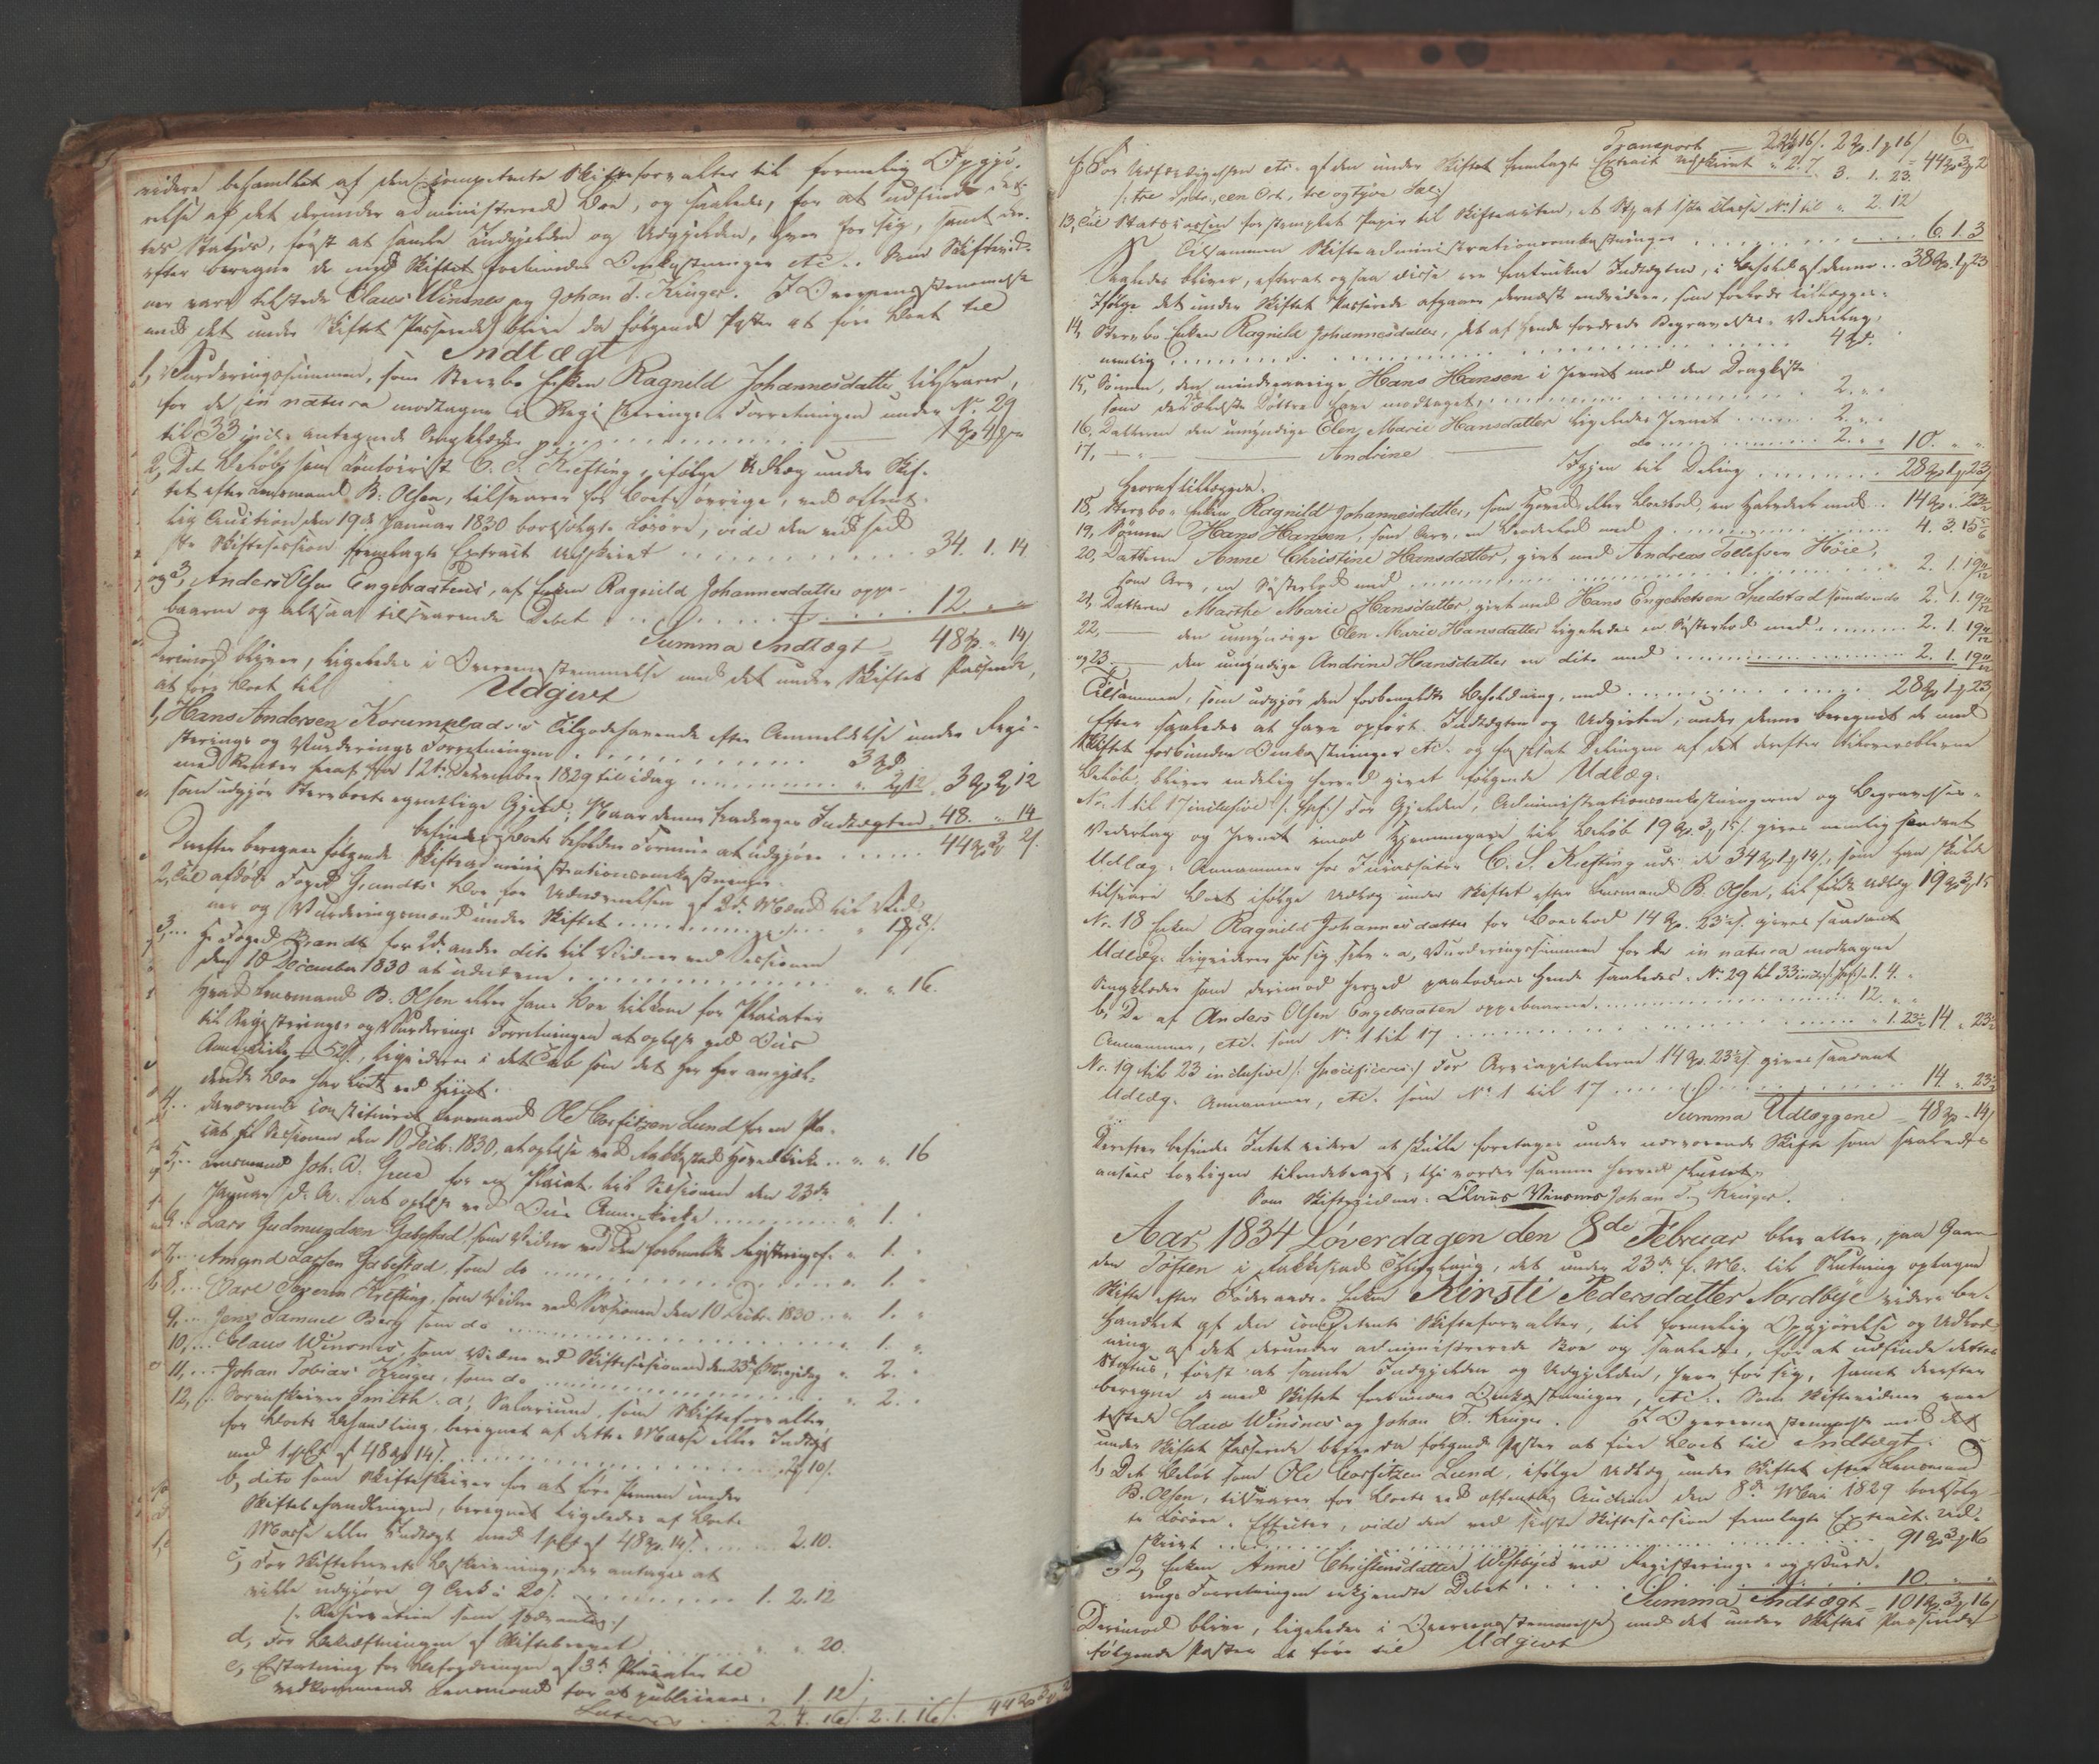 videre behandlet af den competente Skifteforvalter til formelig Opgjø-
relse af det derunder administrerede Boe, og saaledes, for at udfinde det-
tes Status, først at samle Indgjelden og Udgjelden, hver for sig, samt der-
efter beregne de med Skiftet forbundne Omkostninger etc. Som Skiftevid-
ner vare tilstede Claus Winsnes og Johan T. Krüger. I Overensstemmelse
med det under Skiftet Passerede blive da følgende Poster at føre Boet til
Indtægt
1, Vurderingssummen, som Sterbo Enken Ragnild Johannesdatter tilsvarer,
for de in natura modtagne i Registrerings Forretningen under No. 29
til 33 incl. antegnede Sengklæder
2, Det Beløb som Contoirist C. S. Krefting, ifølge Udlæg under Skif-
tet efter Lensmand B. Olsen, tilsvarer for Boets øvrige, ved offent-
lig Auction den 19de Januar 1830 bortsolgte Løsøre, vide den ved sid-
ste Skiftesession fremlagte Extract Udskrivt . . . 34. 1. 14
og 3, Anders Olsen Engebraatens, af Enken Ragnild Johannesdatter oppe-
baarne og altsaa tilsvarende Debet . . . 12. " "
Summa Indtægt = 48 " 14
Derimod bliver, ligeledes i Overensstemmelse med det under Skiftet Passerede,
at føre Boet til
Udgivt
1, Hans Andersen Korumplads's Tilgodehavende efter Anmeldelse under Regi-
sterings og Vurderings Forretningen . . . 3
med Renter heraf fra 12te December 1829 til idag . . . 2. 12 . 3 2 12
som udgjør Sterboets egentlige Gjeld; Naar denne fradrages Indtægten 48. " 14
befindes Boets beholdne Formue at udgjøre . . . 44 3 2
Derefter beregnes følgende Skifteadministrationsomkostninger.
2, Til afdøde Foged Brandts Boe for Udnævnelsen af 2de Mænd til Vid-
ner og Vurderingsmænd under Skiftet . . .
3, . . Hr Foged Brandt for 2de andre dito til Vidner ved Sessionen
den 10 December 1830 at udnævne . . . " " 16.
hvad Lensmand B. Olsen eller hans Boe tilkom for Placater
til Registerings- og Vurderings Forretningen at oplæse ved Dies
4, . . daværende constitueret Lensmand Ole Corfitzen Lund for en Pla-
cat til Sessionen den 10 Decbr. 1830, at oplæse ved Nabbestad Hovedkirke . . " " 16
5, . . Lensmand Joh. A. Grue for en Placat til Sessionen den 23de
Januar d. A. at oplæse ved Dies Annexkirke . . . " 1.
6, . . Lars Gudmundsen Gabestad, som Vidne ved den forbemeldte Registeringsf. " 1.
7, . . Amund Larsen Gabestad, som do . . . " 1.
8, . . Carl Severin Krefting, som Vidne ved Sessionen den 10 Decbr. 1830 . . " 1.
9, . . Jens Samuel Berg som do . . . " 1.
10, . . Claus Winsnes, som Vidne ved Skiftesessionen den 23de f. M. og idag " 2.
11, . . Johan Tobias Krüger, som do . . . " 2.
12, Sorenskriver Smith: a, Salarium, som Skifteforvalter
for Boets Behandling, beregnet af dettes Masse eller Indtægt
med 1 pCt af 48 14 . . . 2 10
b, dito som Skifteskriver for at føre Pennen under
Skiftebehandlingen, beregnet ligeledes af Boets
Masse eller Indtægt med 1 pCt af 48 14 . . . 2. 10.
c, for Skiftebrevets Beskrivning, der antages at
ville udgjøre 9 Ark à 20 . . . 1. 2. 12
d, for Bekræftningen af Skiftebrevet . . . " 20.
e, Erstatning for Befordringen af 3de Placater til
vedkommende Lensmænd for at publiceres . 1. 12
Lateris . . 2. 4. 16 2. 1. 16 44 3 2
6.
Transport = 2 4 16 2 1 16
f, For Udfærdigelsen etc. af den under Skiftet fremlagte Extract Udskrivt " 2. 7. 3. 1. 23. = 44 3 2
/: tre Spdlr., een Ort, tre og tyve Sk. :/
13, Til Statscassen for stemplet Papir til Skifteacten, et Stk. af 1ste Classe No. 1 til " 2. 12
Tilsammen Skifteadministrationsomkostninger . . . 6. 1. 3
Saaledes bliver, efterat ogsaa disse ere fratrukne Indtægten, i Behold af denne . . 38 1 23
Ifølge det under Skiftet Passerede afgaaer dernæst endvidere, som forlods tillægges:
14, Sterbo Enken Ragnild Johannesdatter, det af hende fordrede Begravelses Vederlag,
nemlig . . . 4
15, Sønnen, den mindreaarige Hans Hansen i Jevnet mod den Dragkiste
som de 2 ældste Døttre have modtaget, . . . 2. " "
16, Datteren den umyndige Elen Marie Hansdatter ligeledes Jevnet . . . 2. " "
17, — " — Andrine — do . . . 2. " " 10. " "
Igjen til Deling . . . 28 1 23
hvoraf tillægges:
18, Sterbo Enken Ragnild Johannesdatter, som Hoved eller Boeslod, en Halvdeel med . . 14 " 23½
19, Sønnen Hans Hansen, som Arv, en Broderlod med . . . 4. 3. 15 5/6
20, Datteren Anne Christine Hansdatter, givt med Andreas Tollefsen Høie,
som Arv, en Søsterlod med . . . 2. 1. 19 11/12
21, Datteren Marthe Marie Hansdatter, givt med Hans Engebretsen Spedstad 2. 1. 19 11/12
22, — den umyndige Elen Marie Hansdatter ligeledes en Søsterlod med . . . 2. 1. 19 11/12
og 23 — den umyndige Andrine Hansdatter en dito med . . . 2. 1. 19 11/12
Tilsammen, som udgjør den forbemeldte Beholdning, med . . . 28 1 23
Efter saaledes at have opført Indtægten og Udgivten, under denne beregnet de med
Skiftet forbundne Omkostninger etc. og fastsat Delingen af det derefter tiloversblevne
Beløb, bliver endelig herved givet følgende Udlæg.
No. 1 til 17 inclusive /: Spf. :/ For Gjelden, Administrationsomkostningerne og Begravelses-
Vederlag og Jevnet imod Hjemmegave til Beløb 19 3 15 gives nemlig saadant
Udlæg: Annammer hos Incassator C. S. Krefting udi de 34 1 14, som han skulde
tilsvare Boet ifølge Udlæg under Skiftet efter Lensmand B. Olsen, til fulde Udlæg 19 3 15
No. 18 Enken Ragnild Johannesdatter for Boeslod 14 23½ gives saadant
Udlæg: Liqviderer hos sig selv: a, Vurderingssummen for de in natura modtagne
Sengklæder som derimod herved paalades hende saaledes: No. 29 til 33 incls. 1. 4. "
b, De af Anders Olsen Engebraaten oppebaarne . . . 12. " "
Annammer, etc. som No. 1 til 17 . . . " 1. 23½ 14 " 23½
No. 19 til 23 inclusive /: specificeres :/ For Arvecapitalerne 14 23½ gives saadant
Udlæg: Annammer, etc. som No 1 til 17 . . . 14. " 23½
Summa Udlæggene = 48 " 14
Derefter befindes Intet videre at skulle foretages under nærværende Skifte som saaledes
ansees lovligen tilendebragt, thi vorder samme herved sluttet.
Som Skiftevidner: Claus Winsnes Johan T. Krüger.
Aar 1834 Løverdagen den 8de Februar blev atter, paa Gaar-
den Toften i Nabbestads Thinglaug, det under 23de f. M. til Slutning optagne
Skifte efter Føderaads-Enken Kirsti Pedersdatter Nordbye videre be-
handlet af den competente Skifteforvalter, til formelig Opgjørelse og Udlod-
ning af det derunder administrerede Boe og saaledes, for at udfinde dettes
Status, først at samle Indgjelden og Udgjelden, hver for sig, samt derefter
beregne de med Skiftet forbundne Omkostninger, etc. Som Skiftevidner vare
tilstede Claus Winsnes og Johan T. Krüger. I Overensstemmelse med det
under Skiftet Passerede blive da følgende Poster at føre Boet til Indtægt.
1, Det Beløb som Ole Corfitzen Lund, ifølge Udlæg under Skiftet efter Lensmand
B. Olsen, tilsvarer for Boets ved offentlig Auction den 8de Mai 1829 bortsolg-
te Løsøre-Effecter, vide den ved sidste Skiftesession fremlagte Extract Ud-
skrivt . . . 91 3 16
og 2, Enken Anne Christensdatter Westbyes ved Registerings- og Vurde-
rings Forretningen erkjendte Debet . . . 10. " "
Summa Indtægt = 101 3 16
Derimod blive, ligeledes i Overensstemmelse med det under Skiftet Passerede
følgende Poster at føre til Udgivt